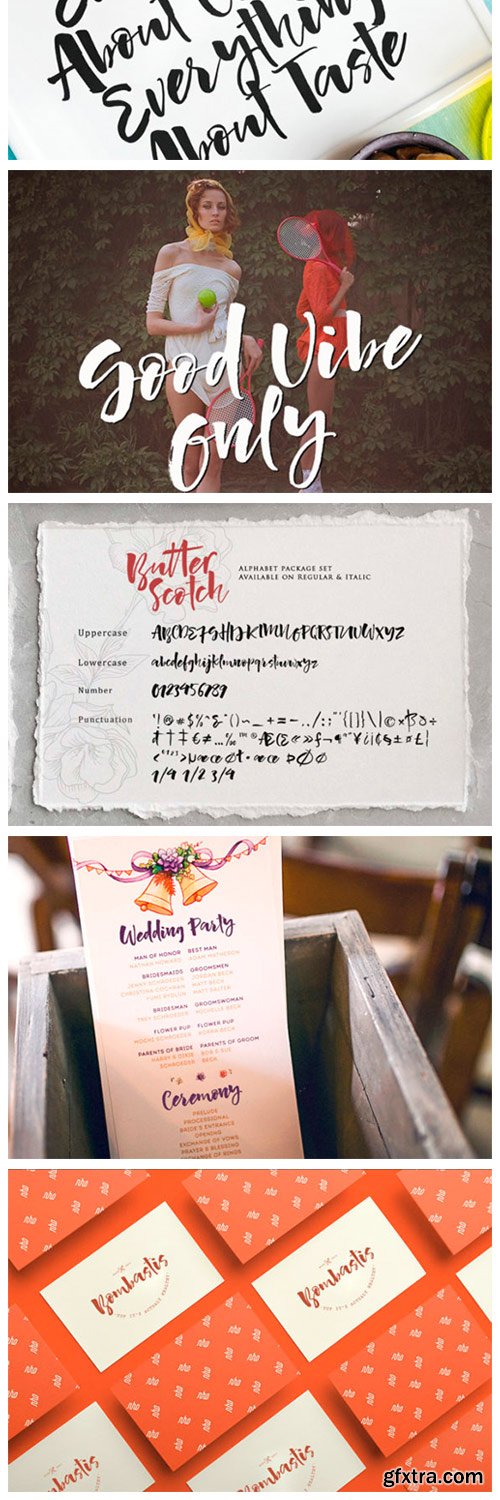 About
Everything
About Taste
Good Vibe
Only
Butter
Scotch
ALPHABET PACKAGE SET
AVAILABLE ON REGULAR & ITALIC
Uppercase ABCDEFGHIJKLMNOPQRSTUVWXYZ
Lowercase abcdefghijklmnopqrstuvwxyz
Number 0123456789
Punctuation
1/4 1/2 3/4
Wedding Party
MAN OF HONOR BEST MAN
NATHAN HOWARD ADAM MATHESON
BRIDESMAIDS GROOMSMEN
JENNY SCHROEDER JORDAN BECK
CHRISTINA COCHRAN MATT BECK
YUMI RYDLUN MATT SALTER
BRIDESMAN GROOMSWOMAN
TREY SCHROEDER MICHELLE BECK
FLOWER PUP FLOWER PUP
MOCHI SCHROEDER KORRA BECK
PARENTS OF BRIDE PARENTS OF GROOM
HARRY & DIXIE BOB & SUE
SCHROEDER BECK
Ceremony
PRELUDE
PROCESSIONAL
BRIDE'S ENTRANCE
OPENING
EXCHANGE OF VOWS
PRAYER & BLESSING
EXCHANGE OF RINGS
Bombastis
YUP IT'S ACTUALLY HEALTHY
Bombastis
YUP IT'S ACTUALLY HEALTHY
Bombastis
Bombastis
gfxtra.com